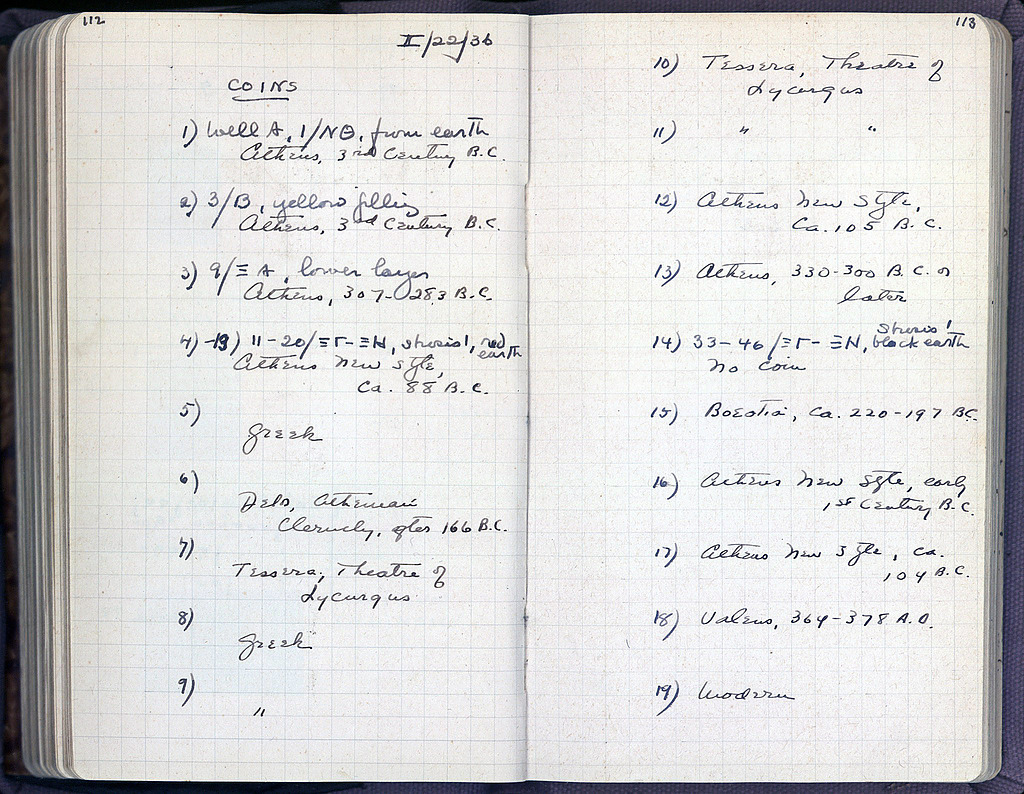 112
II/22/36
COINS
1) Well A, 1/ΝΘ, from earth
Athens, 3rd Century B.C.
2) 3/B, yellow filling
Athens, 3rd Century B.C.
3) 9/Ξ A, lower layer
Athens, 307-283 B.C.
4)-13) 11-20/ΞΓ-ΞΗ, strosis 1, red earth
Athens New Style,
Ca. 88 B.C.
5)
Greek
6)
Delos, Athenian
Cleruchy, after 166 B.C.
7)
Tessera, Theatre of
Lycurgus
8)
Greek
9)
"
113
10) Tessera, Theatre of
Lycurgus
11) " "
12) Athens New Style,
Ca. 105 B.C.
13) Athens, 330-300 B.C. or
later
14) 33-46/ΞΓ-ΞΗ, Strosis 1 black earth
No coin
15) Boeotia, Ca. 220-197 BC.
16) Athens New Style, early
1st Century B.C.
17) Athens New Style, ca.
104 B.C.
18) Valens, 364-378 A.D.
19) Modern